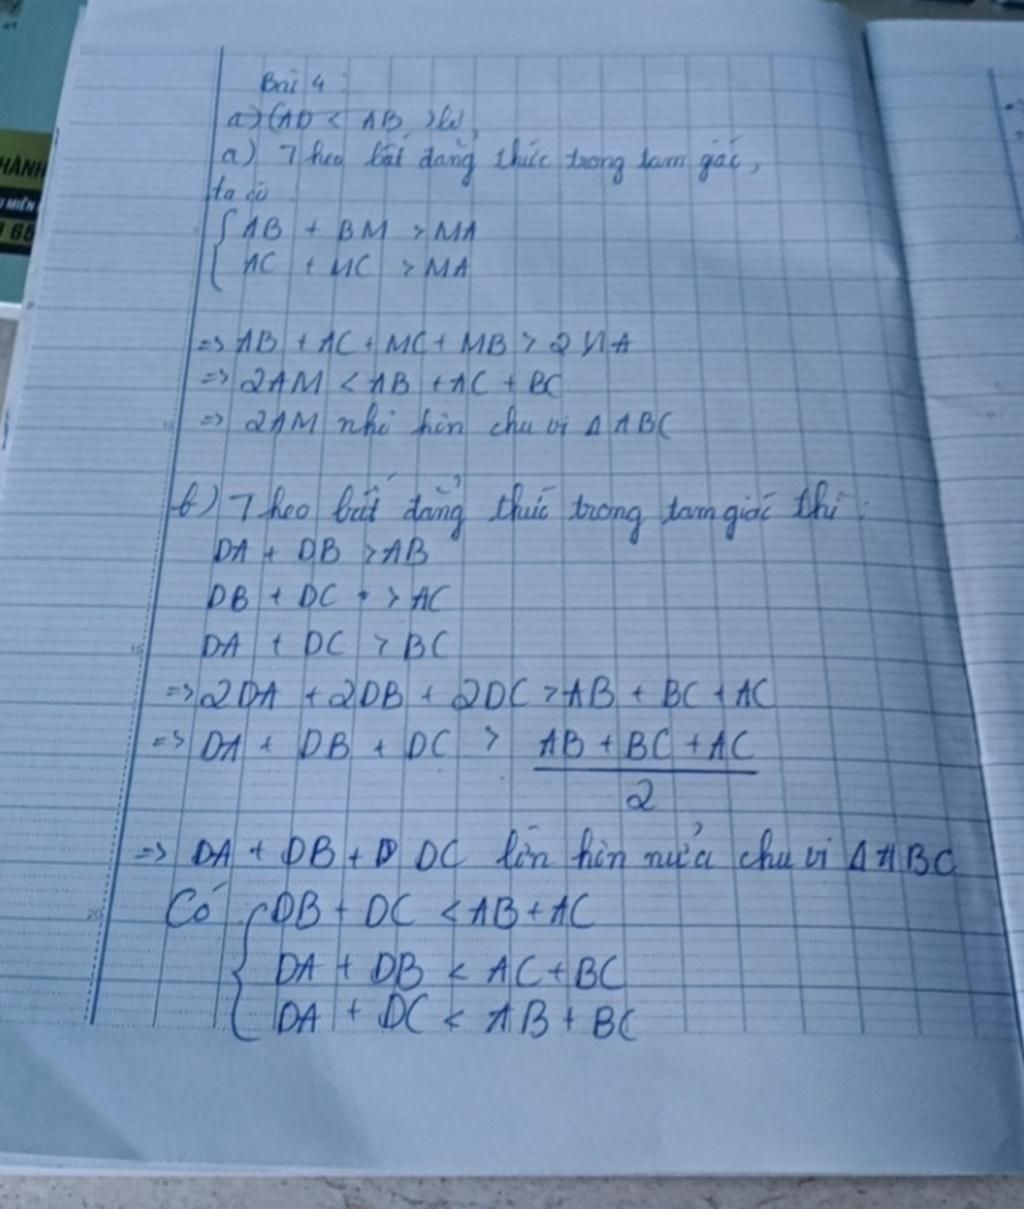 HÀNH
U MIỀN
Bài 4 :
a) (AD < AB
a) Theo bất đẳng thức trong tam gác,
ta có
{ AB + BM > MA
{ AC + MC > MA
=> AB + AC + MC + MB > 2 MA
=> 2AM < AB + AC + BC
=> 2AM nhỏ hơn chu vi Δ ABC
b) Theo bất đẳng thức trong tam giác thì :
DA + DB > AB
DB + DC > AC
DA + DC > BC
=> 2DA + 2DB + 2DC > AB + BC + AC
=> DA + DB + DC > AB + BC + AC
2
=> DA + DB + D DC lớn hơn nửa chu vi Δ ABC
Có { DB + DC < AB + AC
{ DA + DB < AC + BC
{ DA + DC < AB + BC